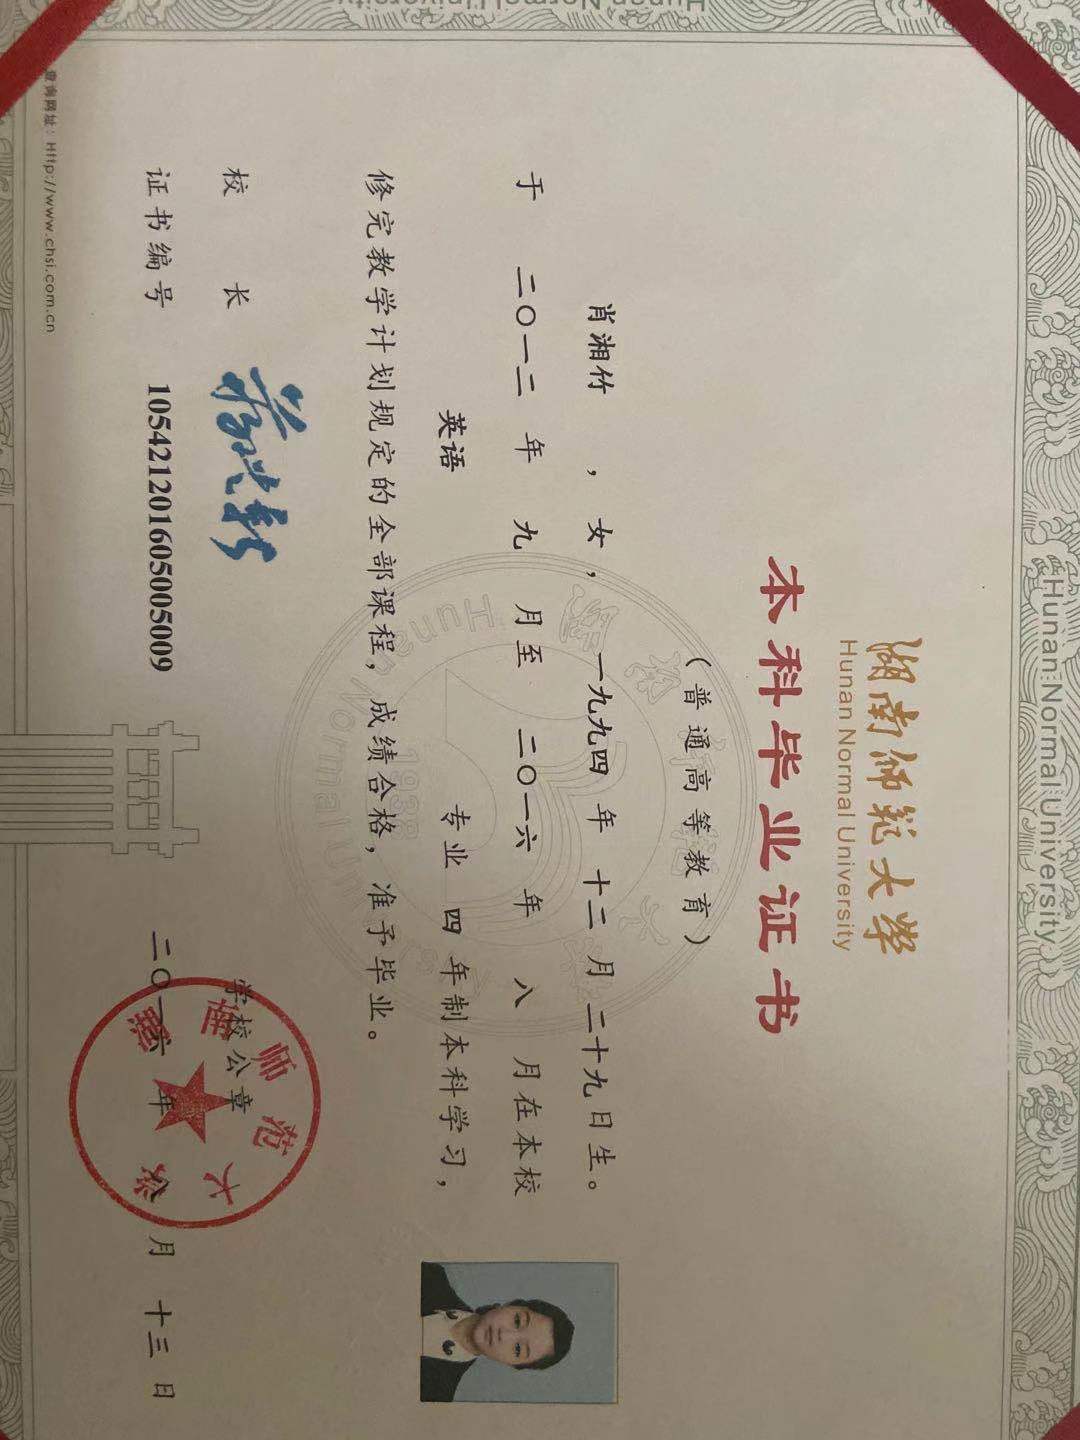 Hunan Normal University
Hunan Normal University
湖南师范大学
Hunan Normal University
本科毕业证书
(普通高等教育)
肖湘竹 ,女,一九九四 年 十二 月 二十九日生。
于 二〇一二 年 九 月至 二〇一六 年 八 月在本校
英语 专业 四 年制本科学习,
修完教学计划规定的全部课程,成绩合格,准予毕业。
校 长
学校公章
湖南师范大学
证书编号 105421201605005009
二〇一六 年 八 月 十三 日
查询网址:Http://www.chsi.com.cn